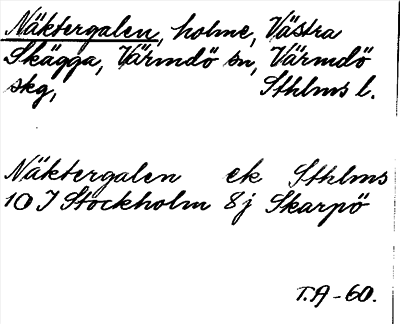 Näktergalen, holme, Västra
Skägga, Värmdö sn, Värmdö
skg, Sthlms l.
Näktergalen ek Sthlms
10 I Stockholm 8j Skarpö
T.A-60.